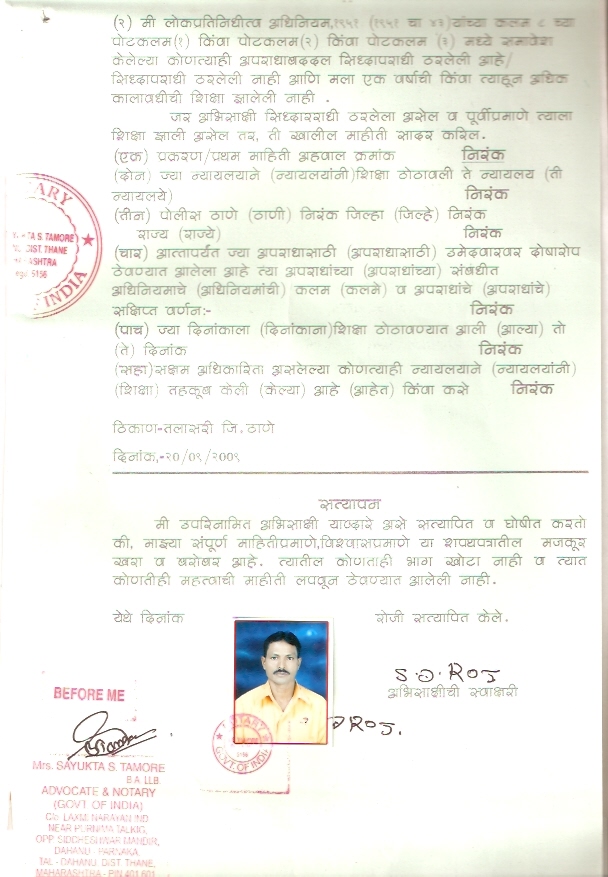 (२) मी लोकप्रतिनिधीत्व अधिनियम,१९५१ (१९५१ चा ४३)यांच्या कलम ८ च्या
पोटकलम(१) किंवा पोटकलम(२) किंवा पोटकलम (३) मध्ये समावेश
केलेल्या कोणत्याही अपराधाबददल सिध्दापराधी ठरलेली आहे/
सिध्दापराधी ठरलेली नाही आणि मला एक वर्षाची किंवा त्याहून अधिक
कालावधीची शिक्षा झालेली नाही .
जर अभिसाक्षी सिध्दाररधी ठरलेला असेल व पूर्वीप्रमाणे त्याला
शिक्षा झाली असेल तर, ती खालील माहीती सादर करिल.
(एक) प्रकरण/प्रथम माहिती अहवाल क्रमांक निरंक
(दोन) ज्या न्यायलयाने (न्यायलयांनी)शिक्षा ठोठावली ते न्यायलय (ती
न्यायलये) निरंक
(तीन) पोलीस ठाणे (ठाणी) निरंक जिल्हा (जिल्हे) निरंक
राज्य (राज्ये) निरंक
(चार) आत्तापर्यंत ज्या अपराधासाठी (अपराधासाठी) उमेदवारवर दोषारोप
ठेवण्यात आलेला आहे त्या अपराधांच्या (अपराधांच्या) संबंधीत
अधिनियमाचे (अधिनियमांची) कलम (कलमे) व अपराधांचे (अपराधांचे)
सक्षिप्त वर्णन:- निरंक
(पाच) ज्या दिनांकाला (दिनांकाना)शिक्षा ठोठावण्यात आली (आल्या) तो
(ते) दिनांक निरंक
(सहा)सक्षम अधिकारिता असलेल्या कोणत्याही न्यायलयाने (न्यायलयांनी)
(शिक्षा) तहकूब केली (केल्या) आहे (आहेत) किंवा कसे निरंक
ठिकाण-तलासरी जि.ठाणे
दिनांक,-२०/०९/२००९
सत्यापन
मी उपरिनामित अभिसाक्षी याव्दारे असे सत्यापित व घोषीत करतो
की, माझ्या संपूर्ण माहितीप्रमाणे,विश्वासप्रमाणे या शपथपत्रातील मजकूर
खरा व बरोबर आहे. त्यातील कोणताही भाग खोटा नाही व त्यात
कोणतीही महत्वाची माहीती लपवून ठेवण्यात आलेली नाही.
येथे दिनांक रोजी सत्यापित केले.
S.D. ROJ
अभिसाक्षीची स्वाक्षरी
D ROJ.
BEFORE ME
Mrs. SAYUKTA S. TAMORE
B.A. LLB.
ADVOCATE & NOTARY
(GOVT OF INDIA)
C/o. LAXMI NARAYAN IND.
NEAR PURNIMA TALKIG,
OPP. SIDDHESHWAR MANDIR,
DAHANU - PARNAKA,
TAL - DAHANU, DIST. THANE,
MAHARASHTRA - PIN 401 601
NOTARY
GOVT OF INDIA
TARY
TA S. TAMORE
DIST. THANE
ASHTRA
5156
F INDIA